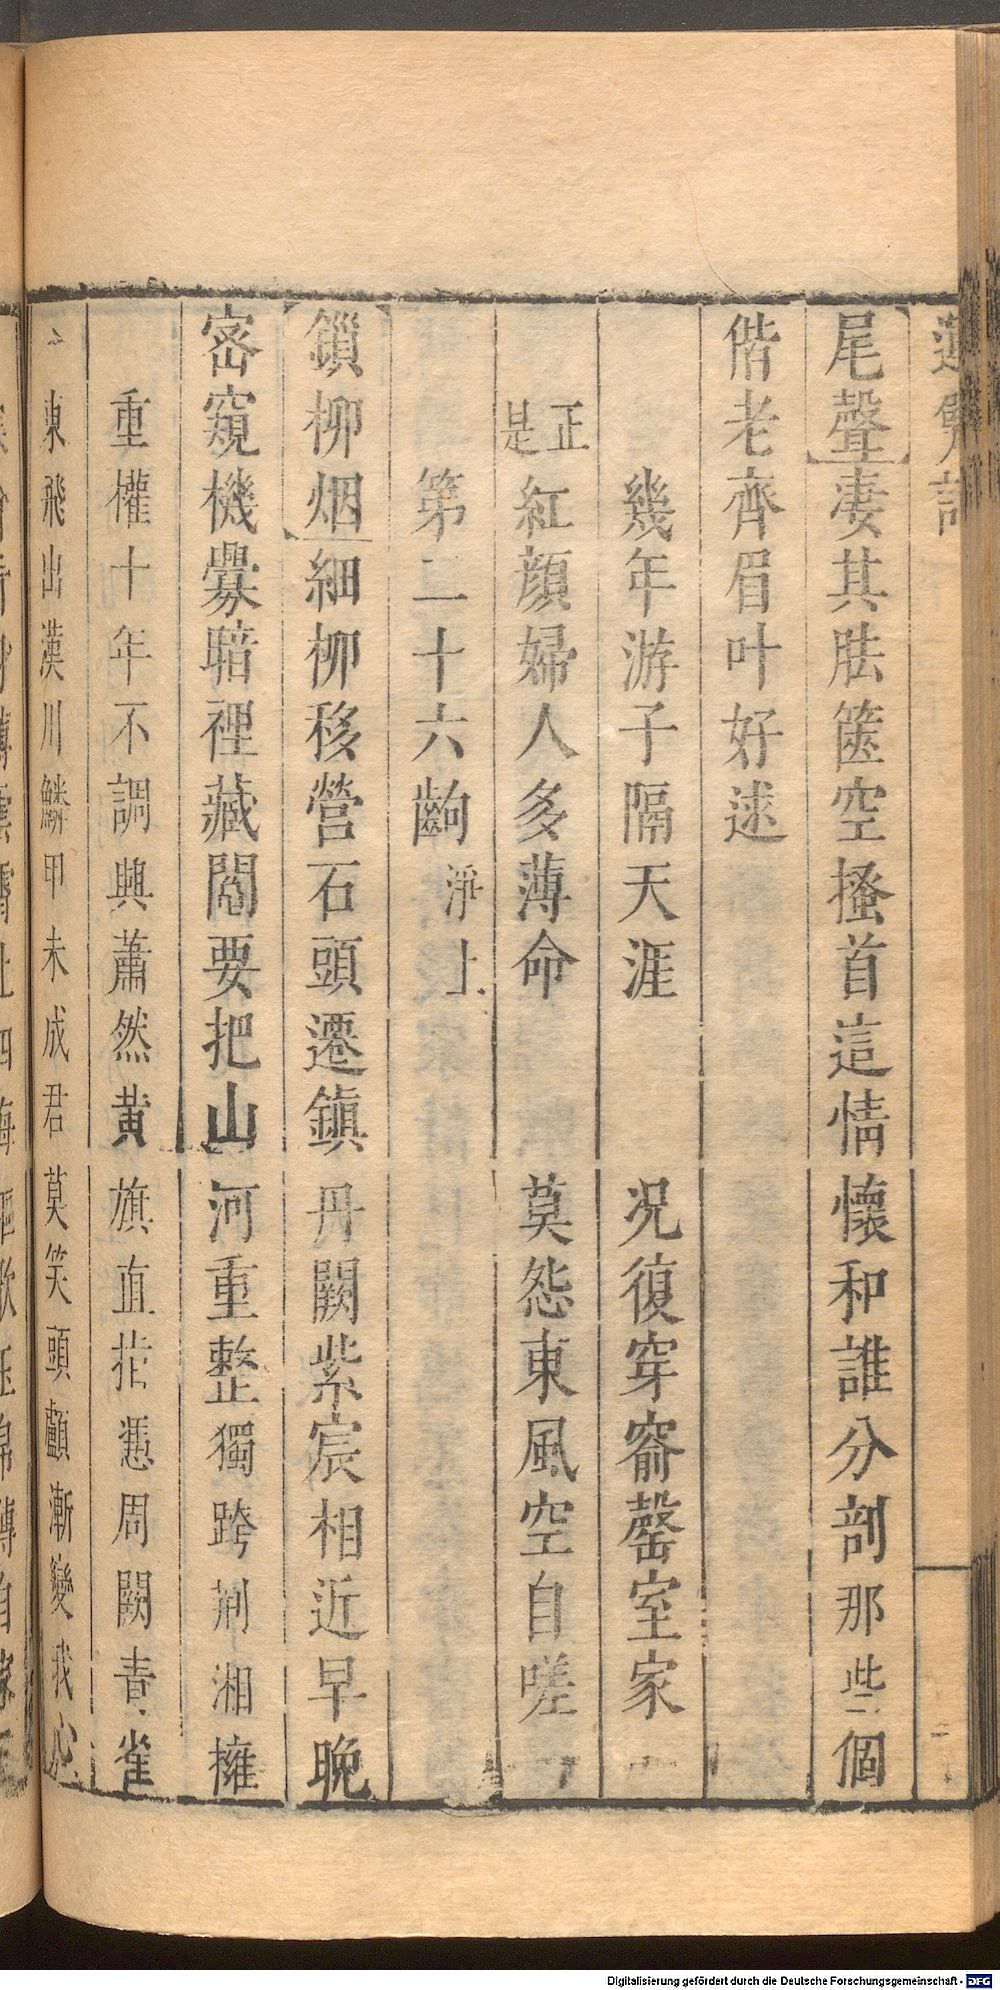 尾聲淒其胠篋空搔首這情懷和誰分剖那些個
偕老齊眉叶好逑
幾年游子隔天涯 况復穿窬罄室家
正是紅顔婦人多薄命 莫怨東風空自嗟
第二十六齣 淨上
鎖柳烟細柳移營石頭遷鎮丹闕紫宸相近早晚
密窺機釁暗裡藏鬮要把山河重整獨跨荆湘擁
重權十年不調興蕭然黄旗直指慿周闕青雀
東飛出漢川鱗甲未成君莫笑頭顱漸變我心
Digitalisierung gefördert durch die Deutsche Forschungsgemeinschaft - DFG